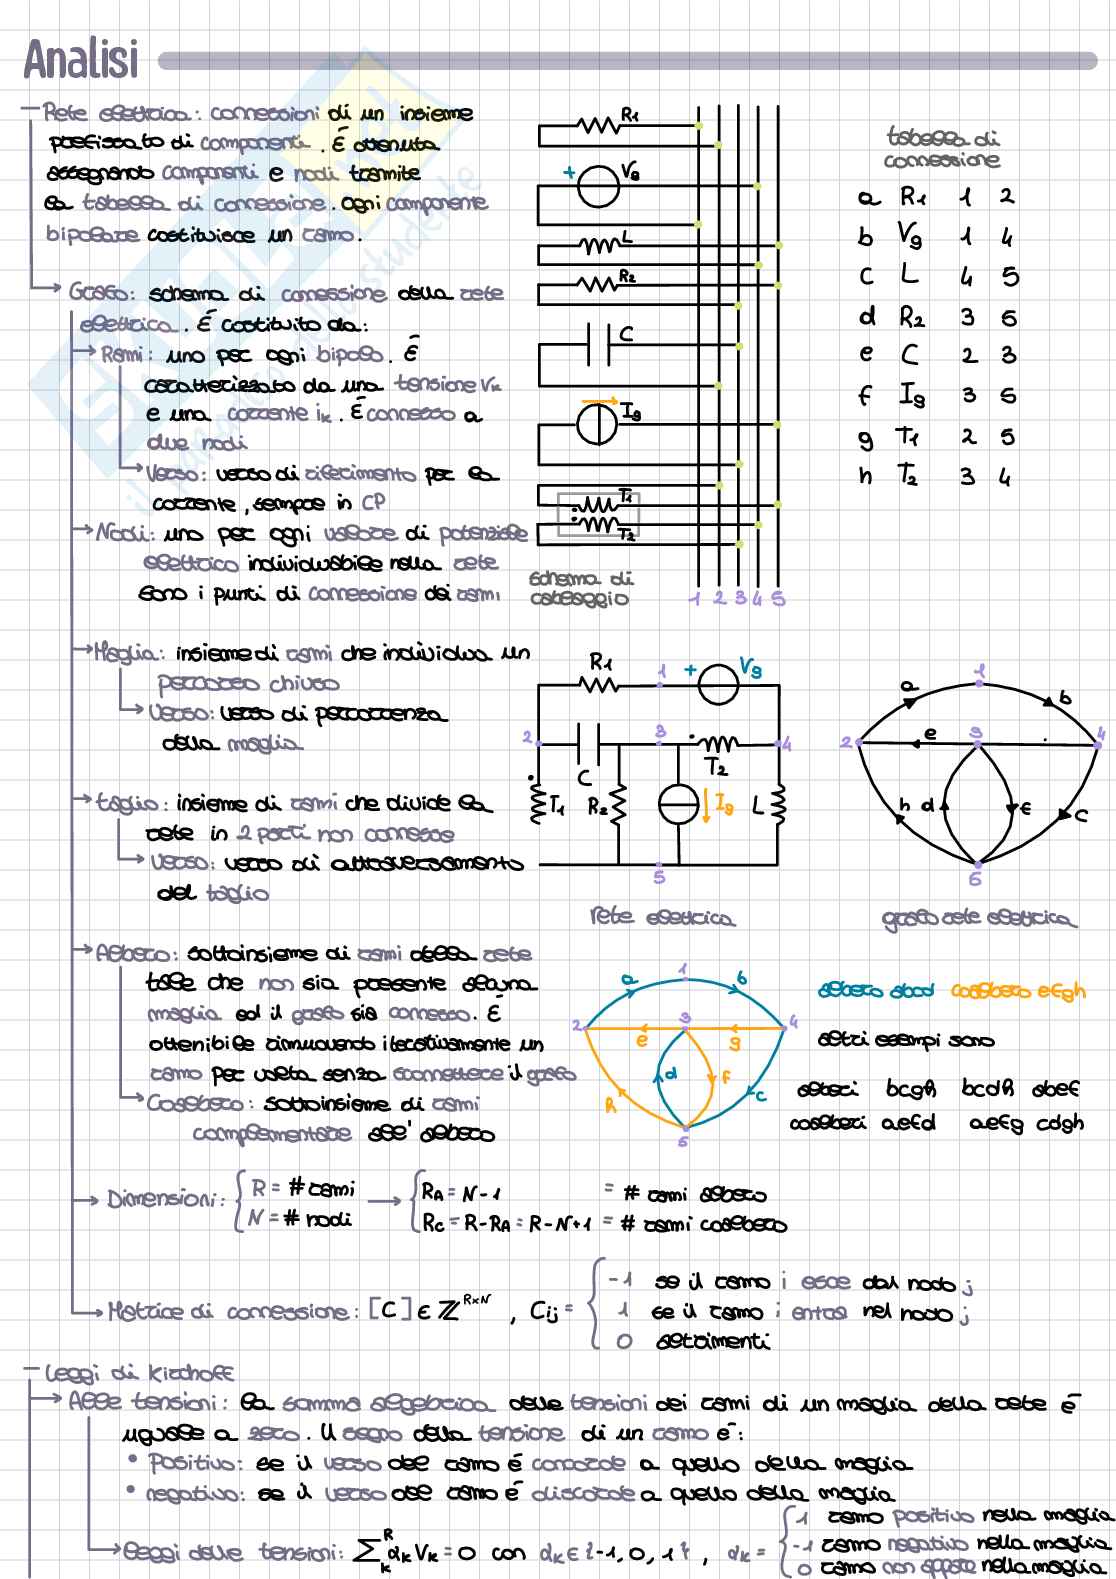 Analisi
Rete elettrica: connessioni di un insieme
prefissato di componenti. È ottenuta
assegnando componenti e nodi tramite
la tabella di connessione. Ogni componente
bipolare costituisce un ramo.
Grafo: schema di connessione della rete
elettrica. È costituito da:
Rami: uno per ogni bipolo. È
caratterizzato da una tensione Vk
e una corrente ik. È connesso a
due nodi
Verso: verso di riferimento per la
corrente, sempre in CP
Nodi: uno per ogni valore di potenziale
elettrico individuabile nella rete
sono i punti di connessione dei rami
Maglia: insieme di rami che individua un
percorso chiuso
Verso: verso di percorrenza
della maglia
Taglio: insieme di rami che divide la
rete in 2 parti non connesse
Verso: verso di attraversamento
del taglio
Albero: sottoinsieme di rami della rete
tale che non sia presente alcuna
maglia ed il grafo sia connesso. È
ottenibile rimuovendo iterativamente un
ramo per volta senza sconnettere il grafo
Coalbero: sottoinsieme di rami
complementare all' albero
R1
+ Vg
L
R2
C
Ig
T1
T2
schema di
cablaggio
1 2 3 4 5
tabella di
connessione
a R1 1 2
b Vg 1 4
c L 4 5
d R2 3 5
e C 2 3
f Ig 3 5
g T1 2 5
h T2 3 4
R1 1 + Vg
2 3 4
C T2
T1 R2 Ig L
5
rete elettrica
1
a b
2 e 3 4
h d f c
5
grafo rete elettrica
1
a b
2 3 4
e g
d f
h c
5
albero abcd coalbero efgh
altri esempi sono
alberi bcgh bcdh abef
coalberi aefd aefg cdgh
Dimensioni: { R = # rami → { RA = N-1 = # rami albero
N = # nodi RC = R-RA = R-N+1 = # rami coalbero
Matrice di connessione: [C] ∈ ℤ^R×N, Cij = { -1 se il ramo i esce dal nodo j
1 se il ramo i entra nel nodo j
0 altrimenti
Leggi di Kirchoff
Alle tensioni: la somma algebrica delle tensioni dei rami di un maglia della rete è
uguale a zero. Il segno della tensione di un ramo è:
• Positivo: se il verso del ramo è concorde a quello della maglia
• negativo: se il verso del ramo è discorde a quello della maglia
Leggi delle tensioni: ∑_k^R αk Vk = 0 con αk ∈ {-1, 0, 1}, αk = { 1 ramo positivo nella maglia
-1 ramo negativo nella maglia
0 ramo non appare nella maglia